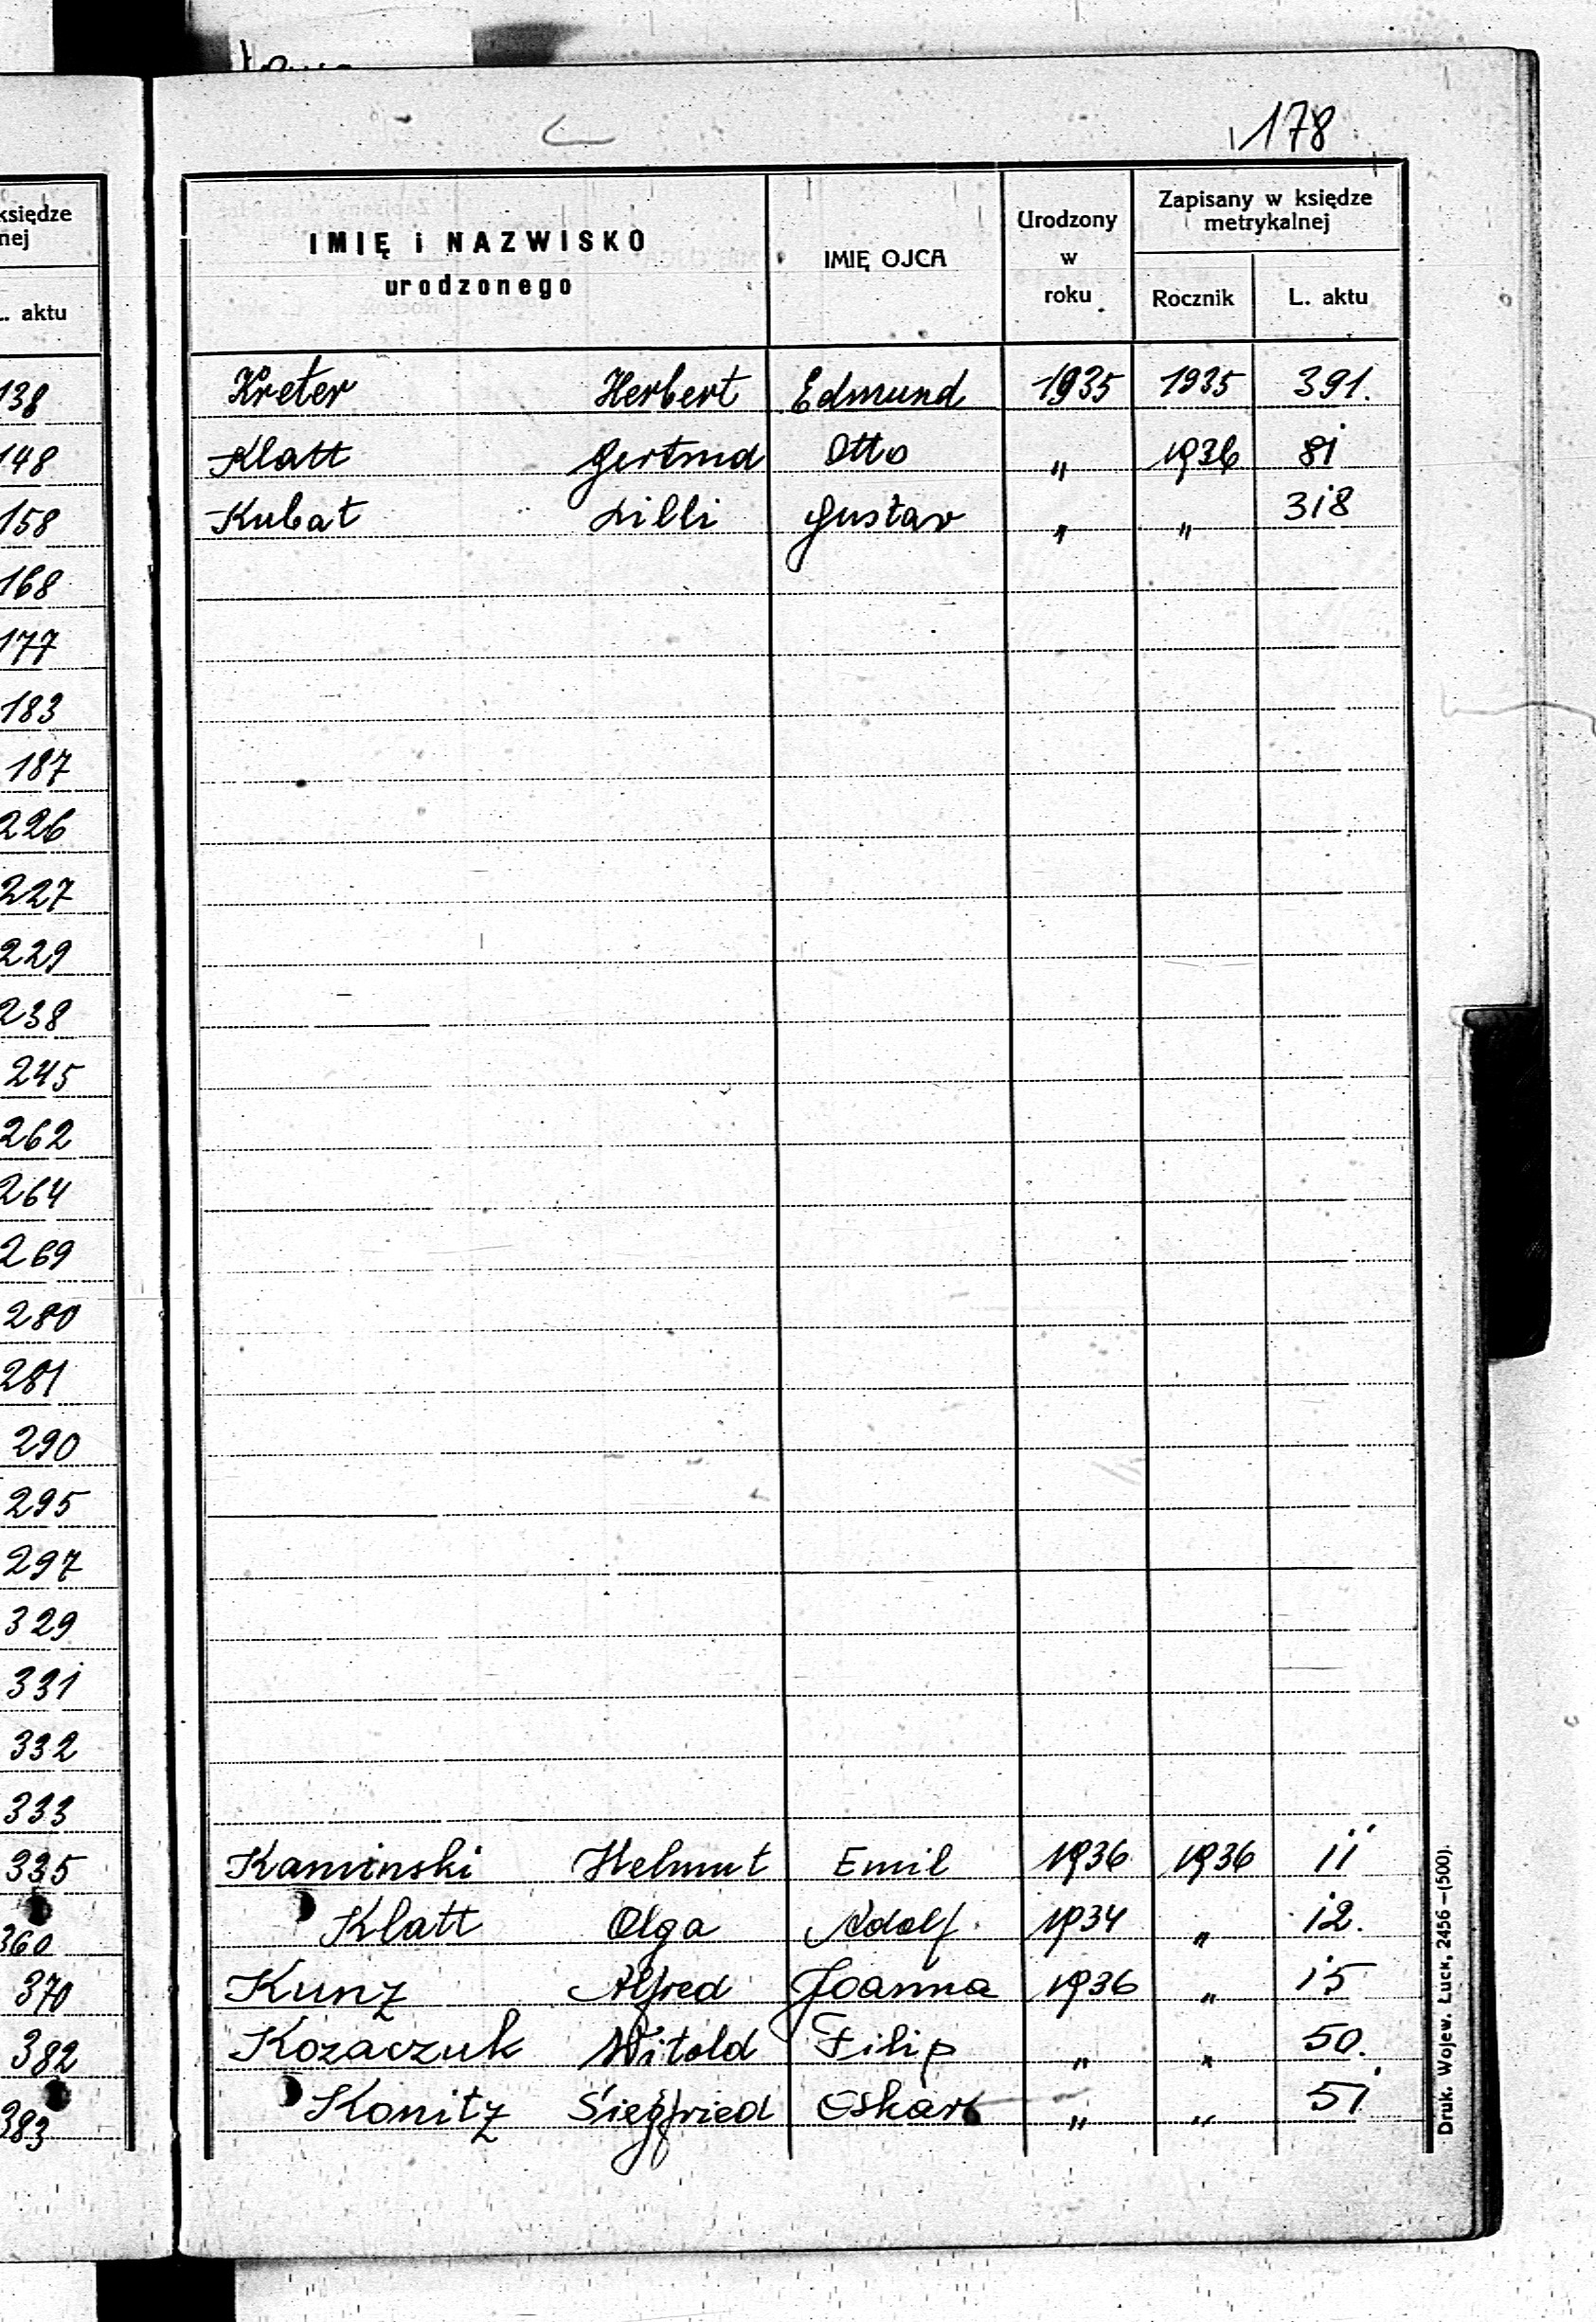 178
księdze
nej
L. aktu
138
148
158
168
177
183
187
226
227
229
238
245
262
264
269
280
281
290
295
297
329
331
332
333
335
360
370
382
383
IMIĘ i NAZWISKO urodzonego
IMIĘ OJCA
Urodzony w roku
Zapisany w księdze metrykalnej
Rocznik
L. aktu
Kreter Herbert Edmund 1935 1935 391.
Klatt Gertrud Otto " 1936 81
Kubat Lilli Gustav " " 318
Kaminski Helmut Emil 1936 1936 11
Klatt Olga Adolf 1934 " 12.
Kunz Alfred Joanna 1936 " 15
Kozaczuk Witold Filip " " 50.
Konitz Siegfried Oskar " " 51
Druk. Wojew. Łuck, 2456—(500).